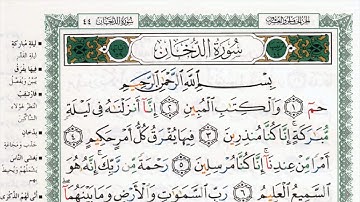 سُورَةُ الدُّخَانِ ٤٤
سُورَةُ الدُّخَانِ
بِسْمِ اللَّهِ الرَّحْمَٰنِ الرَّحِيمِ
حمٓ ۝١ وَالْكِتَابِ الْمُبِينِ ۝٢ إِنَّا أَنزَلْنَاهُ فِي لَيْلَةٍ
مُّبَارَكَةٍ إِنَّا كُنَّا مُنذِرِينَ ۝٣ فِيهَا يُفْرَقُ كُلُّ أَمْرٍ حَكِيمٍ ۝٤
أَمْرًا مِّنْ عِندِنَا إِنَّا كُنَّا مُرْسِلِينَ ۝٥ رَحْمَةً مِّن رَّبِّكَ إِنَّهُ هُوَ
السَّمِيعُ الْعَلِيمُ ۝٦ رَبِّ السَّمَاوَاتِ وَالْأَرْضِ وَمَا بَيْنَهُمَا
ليلة مباركة
ليلة القدر
فيها يفرق
فارتقب
بدخان
يغشى الناس